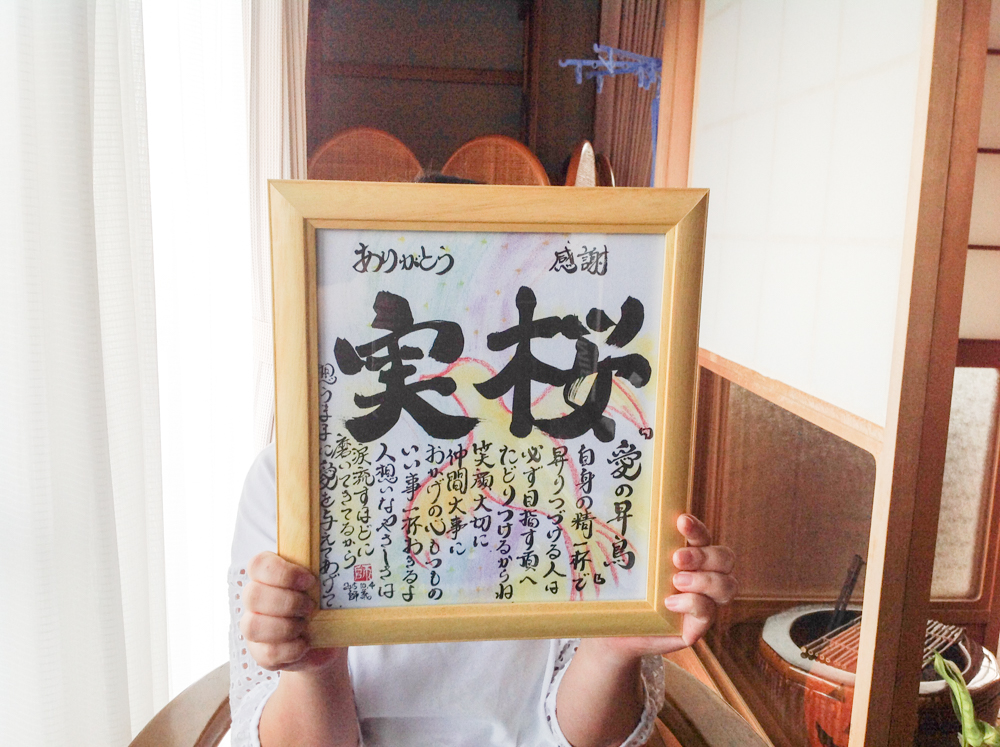 感謝
ありがとう
桜
実
『愛の昇鳥』
自身の精一杯で
昇りつづける人は
必ず目指す へ
たどりつけるからね
笑顔大切に
仲間大事に
おかげの心もつもの
いい事一杯おきるよ
人想いなやさしさは
涙流すほどに
磨いてきてるから
を与えてあげて